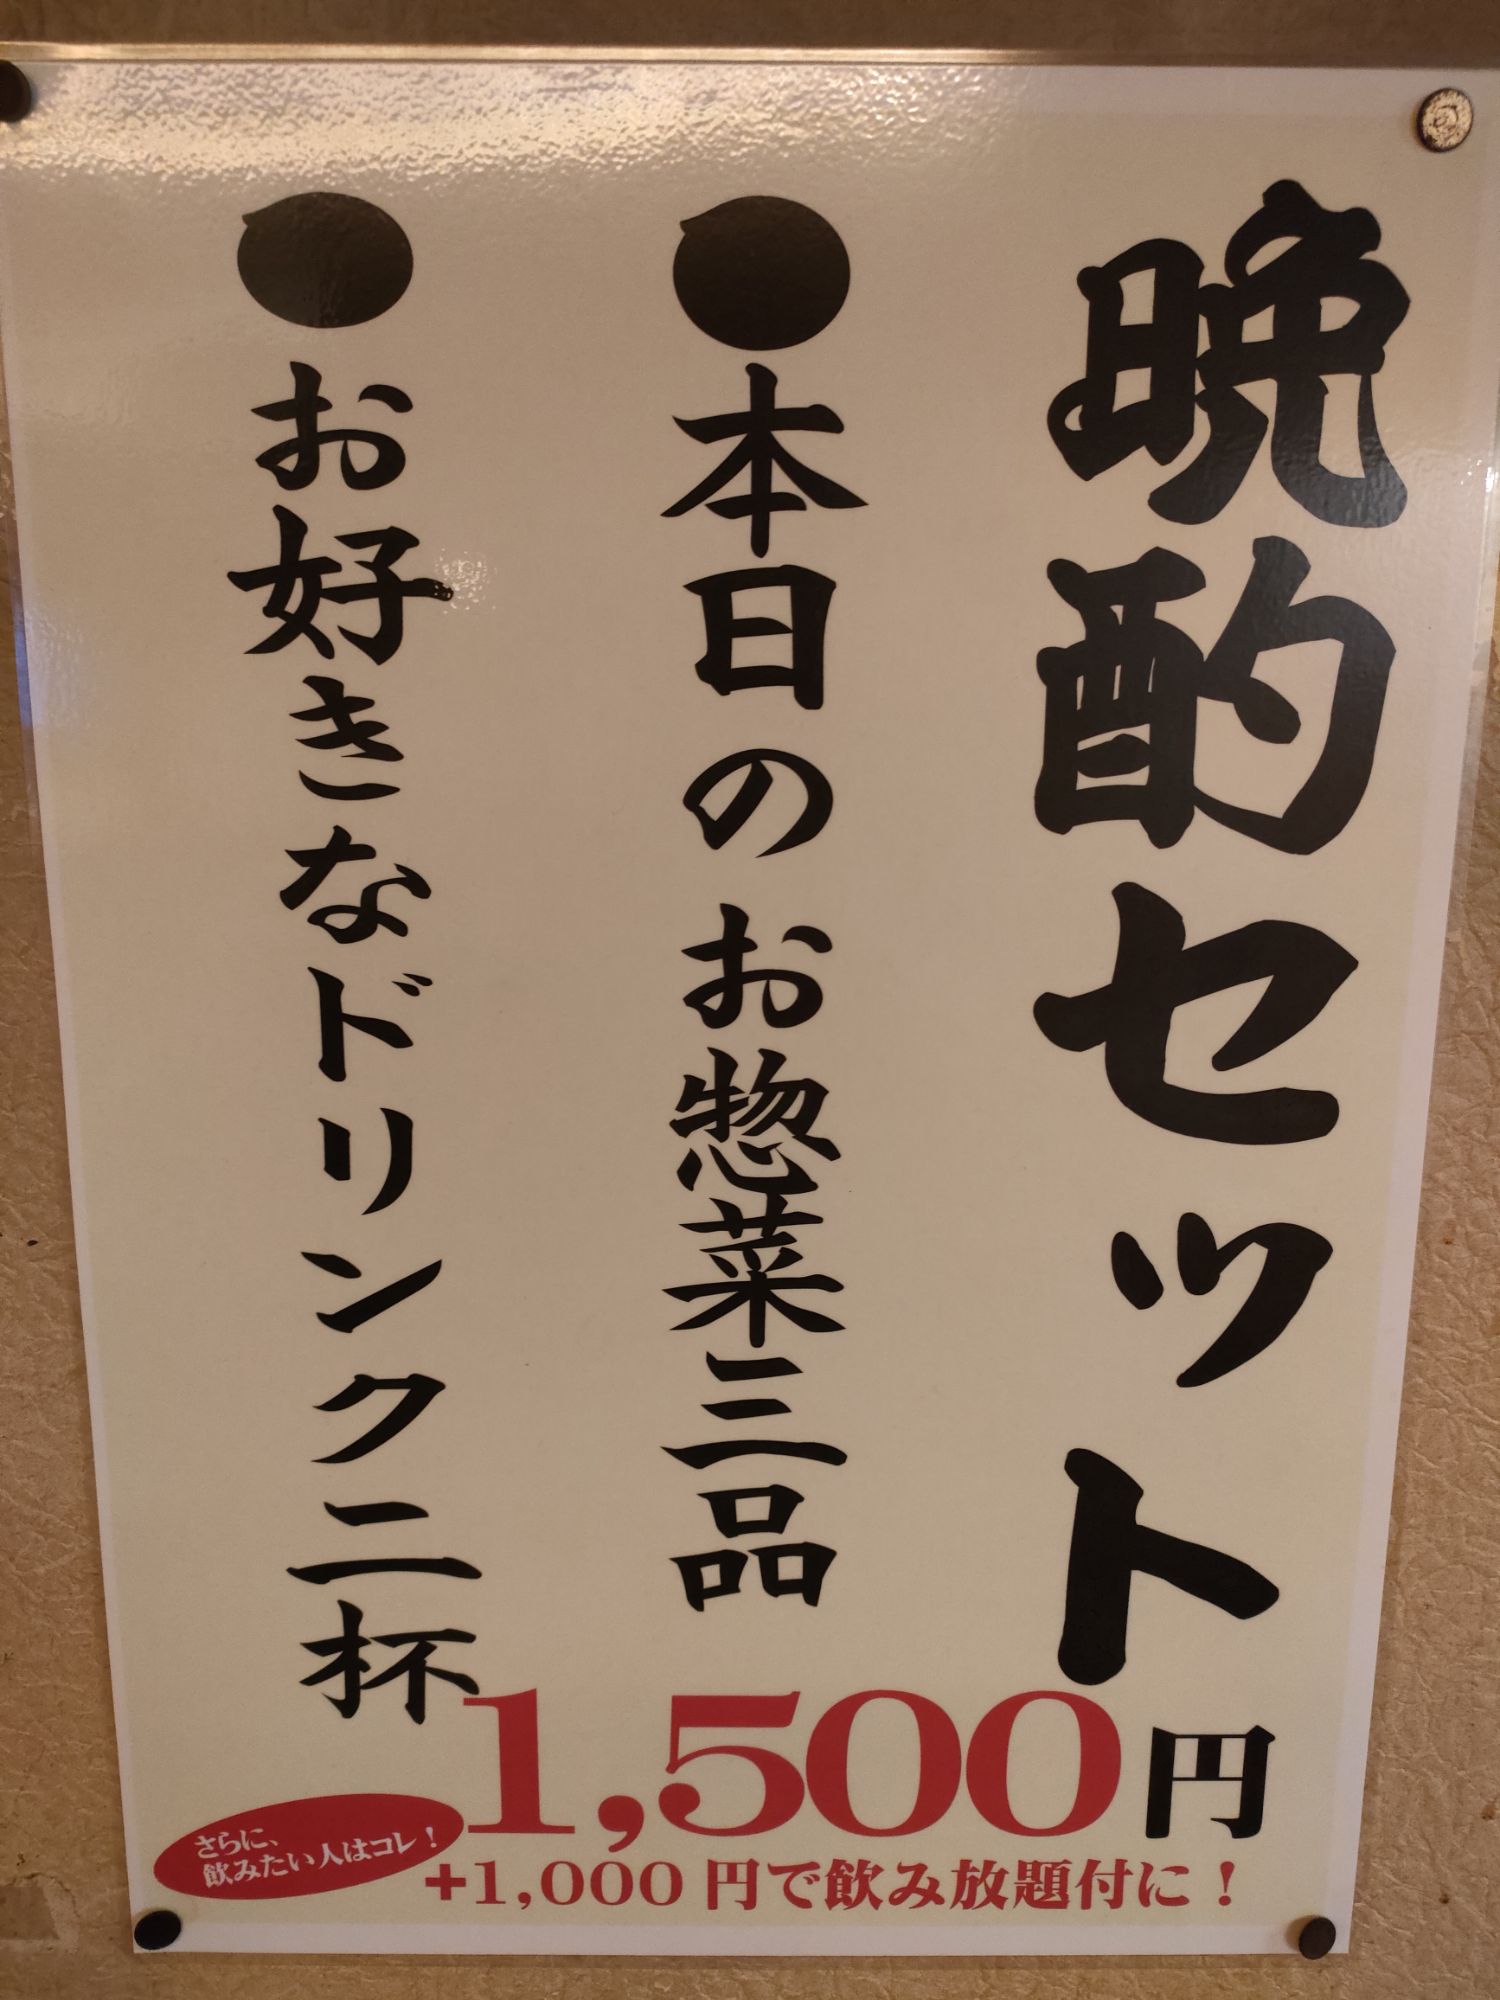 晩酌セット
●本日のお惣菜三品
●お好きなドリンク二杯
1,500円
さらに、
飲みたい人はコレ！
+1,000円で飲み放題付に！